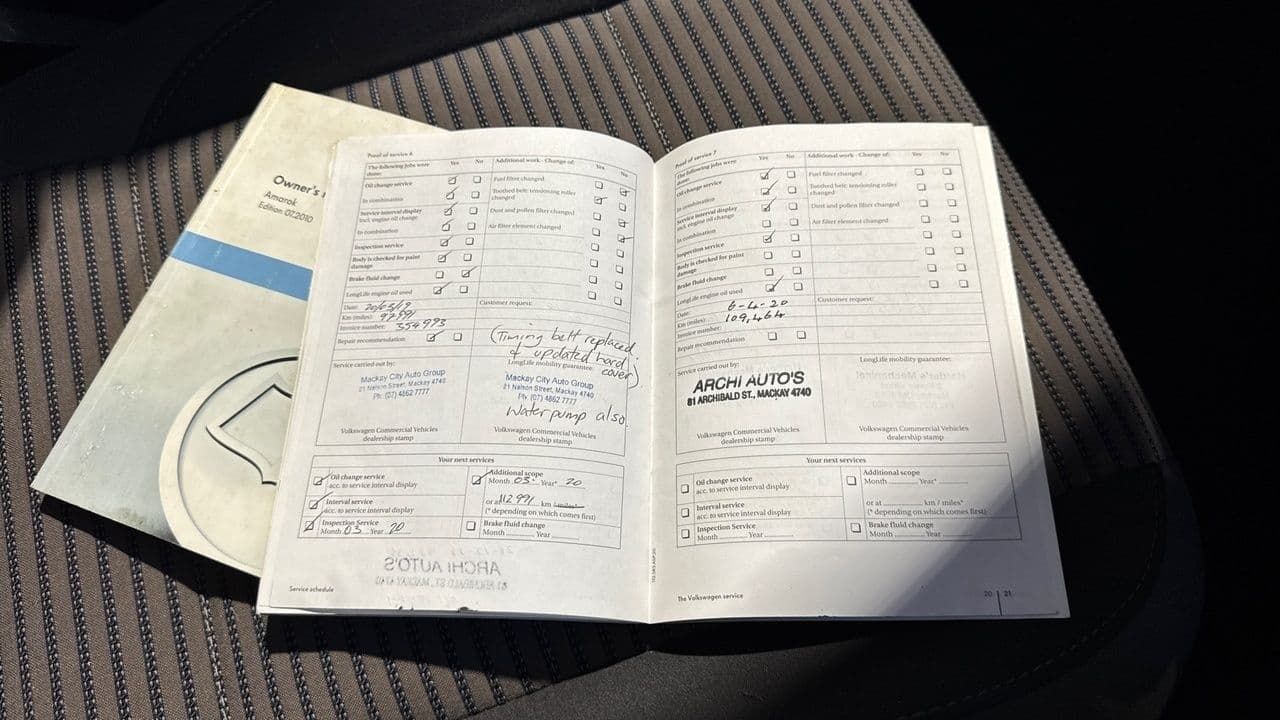 Owner's
Amarok
Edition: 07.2010
Proof of service 6
The following jobs were done: Yes No Additional work - Change of: Yes No
Oil change service
Fuel filter changed
In combination
Toothed belt: tensioning roller changed
Service interval display incl. engine oil change
Dust and pollen filter changed
In combination
Air filter element changed
Inspection service
Body is checked for paint damage
Brake fluid change
LongLife engine oil used
Date: 20/03/19
Customer request:
Km (miles): 97991
Invoice number: 354993
Repair recommendation:
(Timing belt replaced
& updated hard
cover)
Service carried out by:
LongLife mobility guarantee:
Mackay City Auto Group
21 Nelson Street, Mackay 4740
Ph: (07) 4862 7777
Mackay City Auto Group
21 Nelson Street, Mackay 4740
Ph: (07) 4862 7777
Water pump also
Volkswagen Commercial Vehicles
dealership stamp
Volkswagen Commercial Vehicles
dealership stamp
Your next services
Oil change service
acc. to service interval display
Additional scope
Month 03 Year* 20
Interval service
acc. to service interval display
or at 112 991 km / miles*
(* depending on which comes first)
Inspection Service
Month 03 Year 20
Brake fluid change
Month Year
ARCHI AUTO'S
81 ARCHIBALD ST., MACKAY 4740
Service schedule
Proof of service 7
The following jobs were done: Yes No Additional work - Change of: Yes No
Oil change service
Fuel filter changed
In combination
Toothed belt: tensioning roller changed
Service interval display incl. engine oil change
Dust and pollen filter changed
In combination
Air filter element changed
Inspection service
Body is checked for paint damage
Brake fluid change
LongLife engine oil used
Date: 6-4-20
Customer request:
Km (miles): 109,464
Invoice number:
Repair recommendation:
Service carried out by:
LongLife mobility guarantee:
ARCHI AUTO'S
81 ARCHIBALD ST., MACKAY 4740
Volkswagen Commercial Vehicles
dealership stamp
Volkswagen Commercial Vehicles
dealership stamp
Your next services
Oil change service
acc. to service interval display
Additional scope
Month Year*
Interval service
acc. to service interval display
or at km / miles*
(* depending on which comes first)
Inspection Service
Month Year
Brake fluid change
Month Year
The Volkswagen service
20 | 21